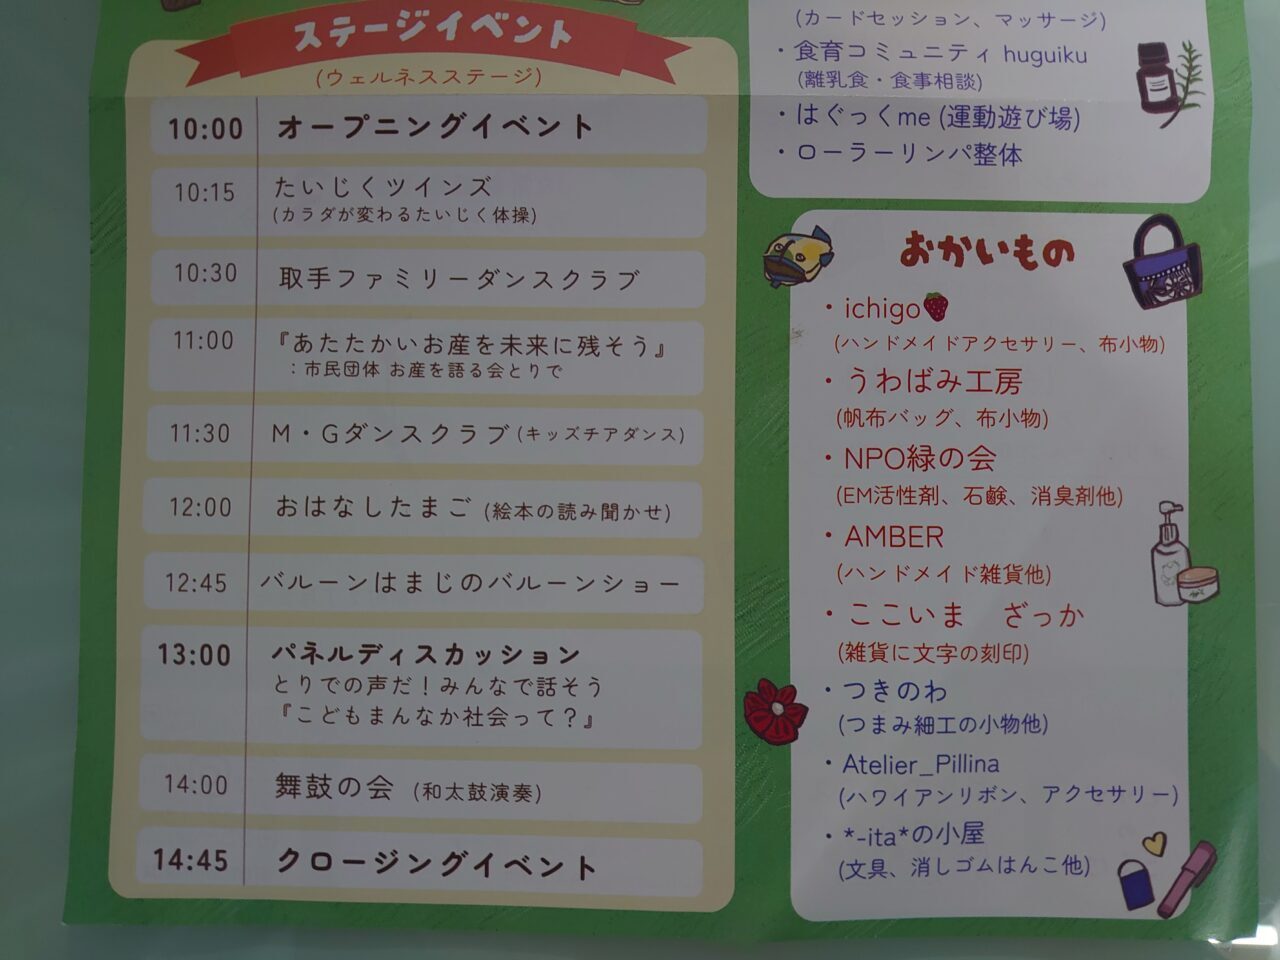 ステージイベント
(ウェルネスステージ)
10:00 オープニングイベント
10:15 たいじくツインズ
(カラダが変わるたいじく体操)
10:30 取手ファミリーダンスクラブ
11:00 『あたたかいお産を未来に残そう』
：市民団体 お産を語る会とりで
11:30 M・Gダンスクラブ(キッズチアダンス)
12:00 おはなしたまご (絵本の読み聞かせ)
12:45 バルーンはまじのバルーンショー
13:00 パネルディスカッション
とりでの声だ！みんなで話そう
『こどもまんなか社会って？』
14:00 舞鼓の会 (和太鼓演奏)
14:45 クロージングイベント
(カードセッション、マッサージ)
・食育コミュニティ huguiku
(離乳食・食事相談)
・はぐっくme (運動遊び場)
・ローラーリンパ整体
おかいもの
・ichigo
(ハンドメイドアクセサリー、布小物)
・うわばみ工房
(帆布バッグ、布小物)
・NPO緑の会
(EM活性剤、石鹸、消臭剤他)
・AMBER
(ハンドメイド雑貨他)
・ここいま ざっか
(雑貨に文字の刻印)
・つきのわ
(つまみ細工の小物他)
・Atelier_Pillina
(ハワイアンリボン、アクセサリー)
・*-ita*の小屋
(文具、消しゴムはんこ他)